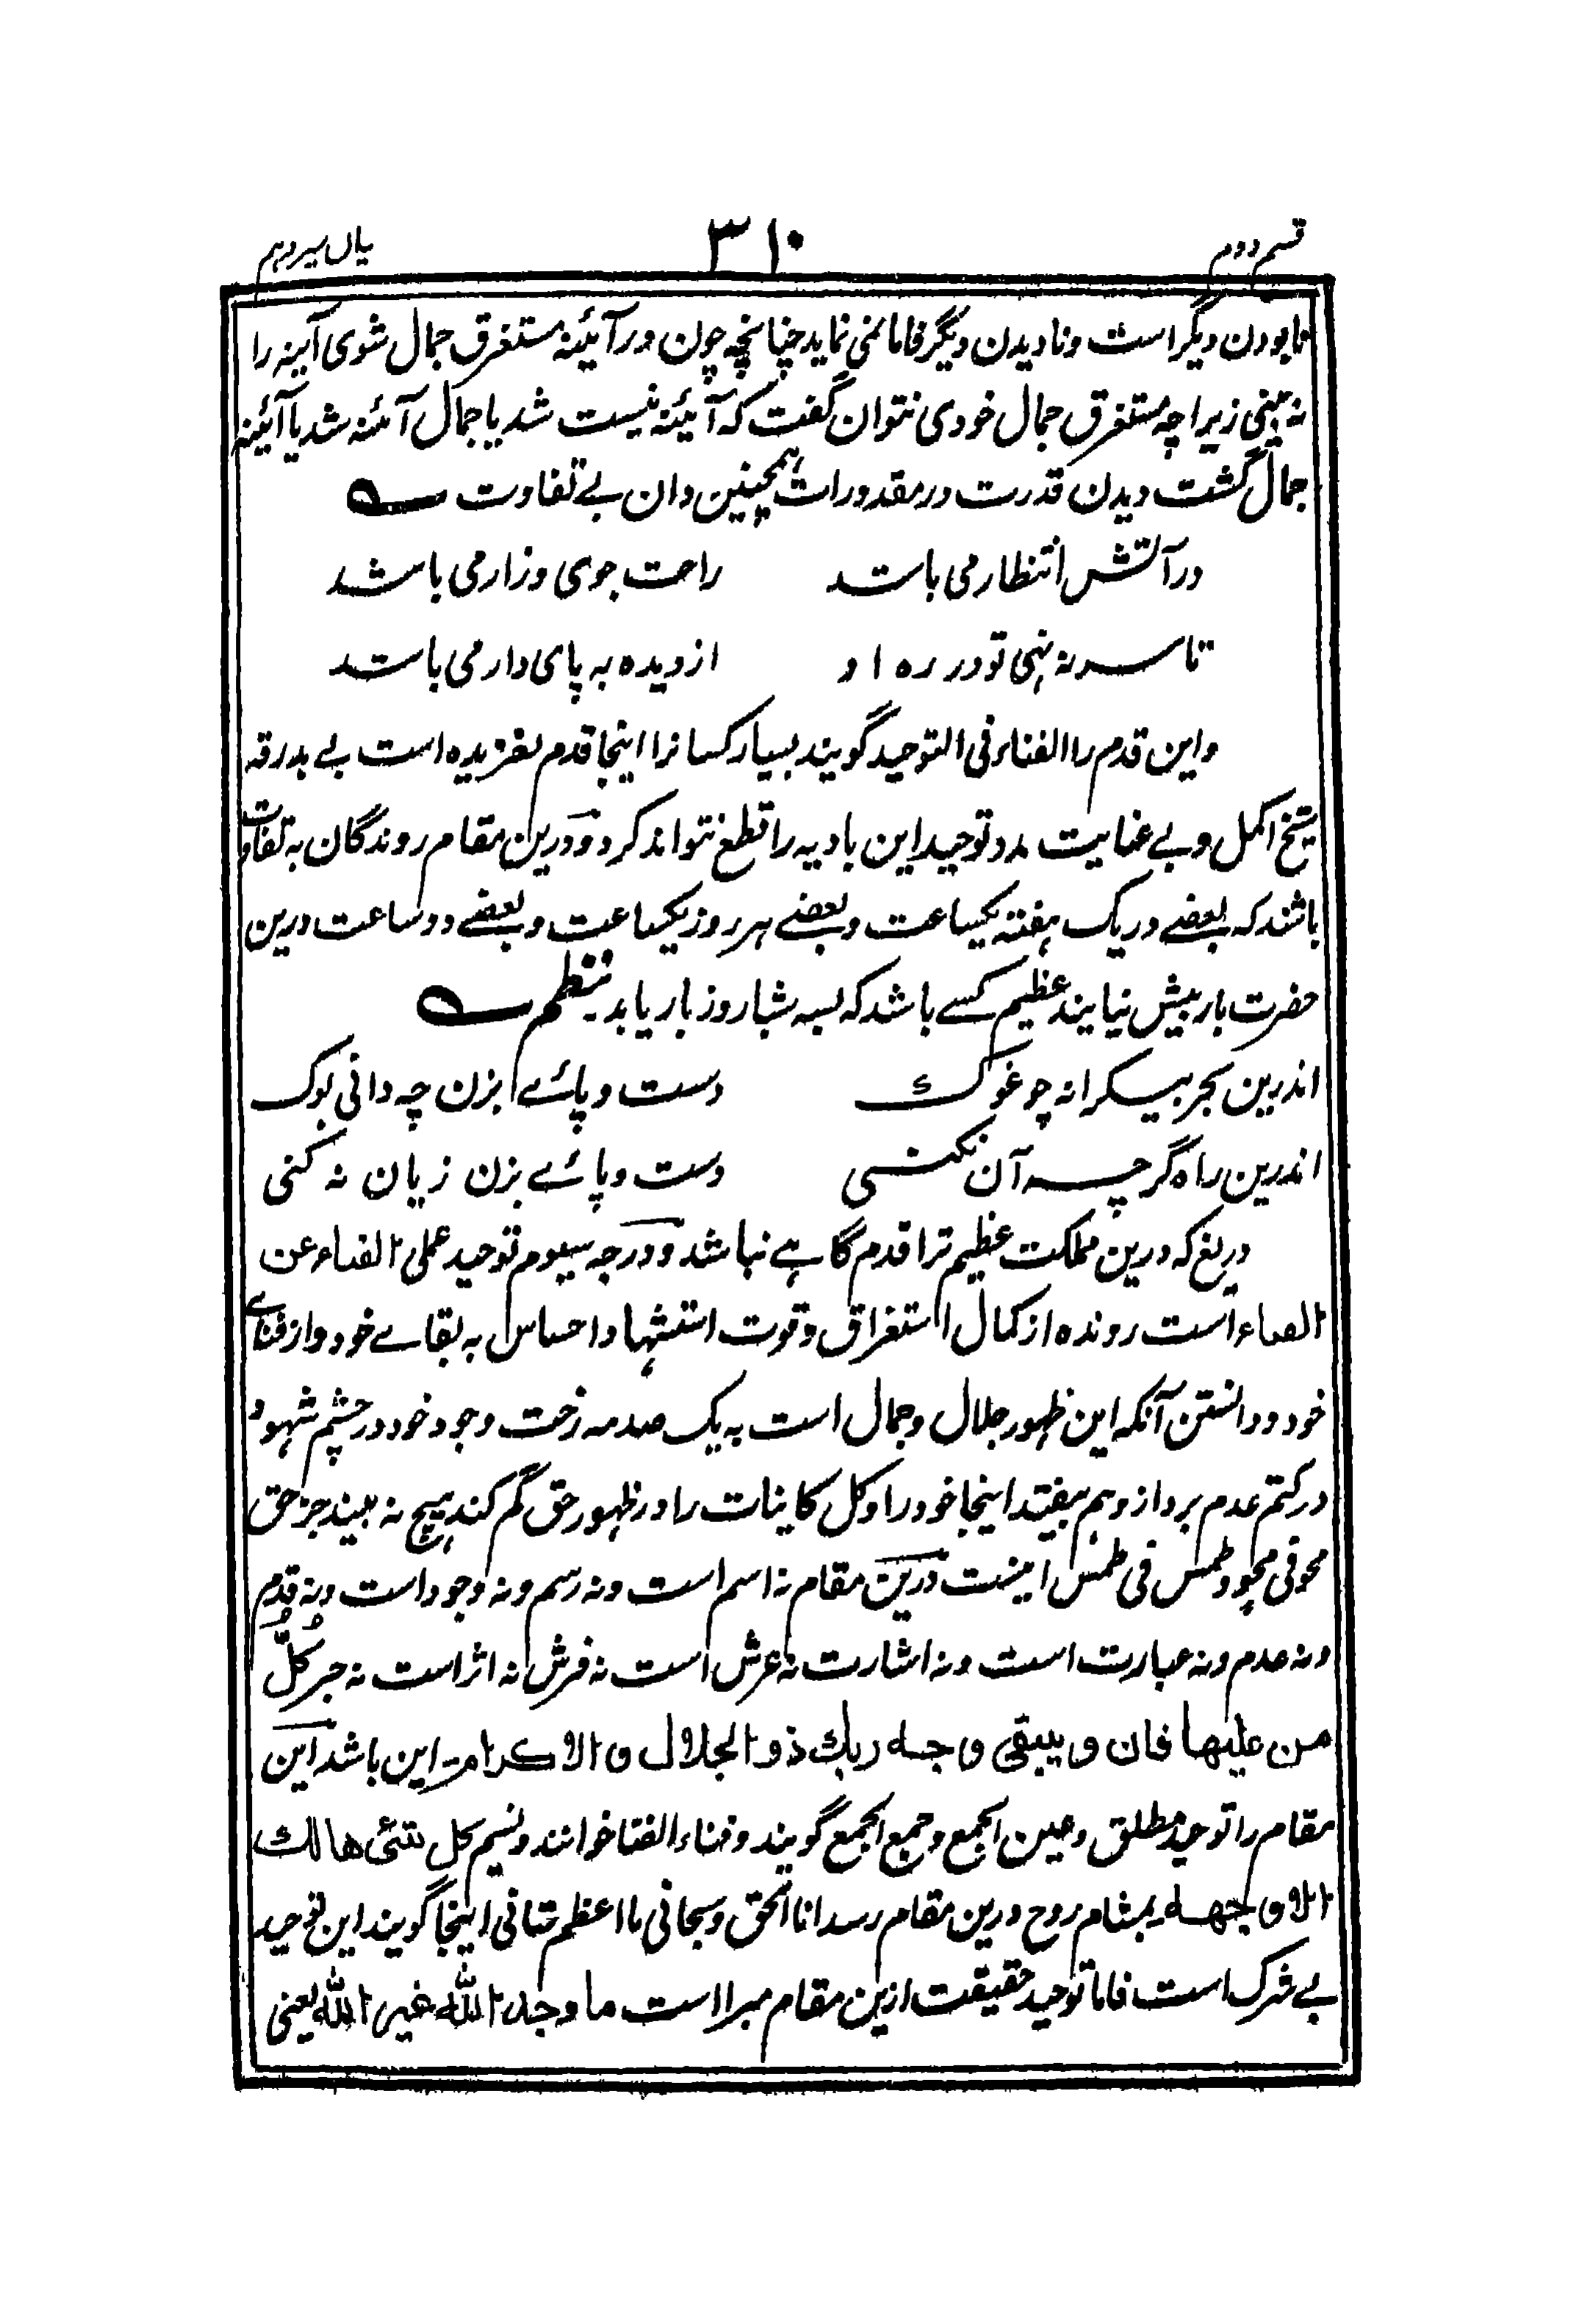 قسم دوم ۳۱۰ بیاں سیزدہم
نابودن دیگر است ونا دیدن دیگر فاما نمی نماید چنانچه چون در آئینه مستغرق جمال شوی آئینه را
نه بینی زیرا چه مستغرق جمال خودی نتوان گفت که آئینه نیست شد یا جمال آئنه شد یا آئینه
جمال گشت دیدن قدرت در مقدورات همچنین دان بے تفاوت
در آتش انتظار می باشد راحت جوی وزار می باشد
تا سر نه نهی تو در ره او از دیده به پای دار می باشد
واین قدم را الفناء فی التوحید گویند بسیار کسانرا اینجا قدم لغزیده است بے بدرقه
شیخ اکمل وبے عنایت مدد توحید این بادیه را قطع نتواند کرد ودرین مقام روندگان به تفاوت
باشند که بعضے در یک هفته یکساعت وبعضے هر روز یکساعت وبعضے دو ساعت درین
حضرت بار بیش نیایند عظیم کسے باشد که بسه شبا روز بار یابد نظم
اندرین بحر بیکرانه چو غوک دست وپائے بزن چه دانی بوک
اندرین راه گرچه آن نکنی دست وپائے بزن زیان نه کنی
دریغ که درین مملکت عظیم ترا قدم گاہے نباشد ودرجه سیوم توحید عملی الفناء عن
الفناء است رونده از کمال استغراق وقوت استشهاد احساس به بقاے خود واز فناے
خود ودانستن آنکه این ظهور جلال وجمال است به یک صدمه رخت وجود خود در چشم شهود
در کتم عدم بردازوهم بیفتد اینجا خود را وکل کاینات را در ظهور حق گم کند هیچ نه بیند جز حق
محو فی محو وطمس فی طمس اینست درین مقام نه اسم است ونه رسم ونه وجود است ونه قدم
ونه عدم ونه عبارت است ونه اشارت نه عرش است نه فرش نه اثر است نه خبر کُلُّ
من علیها فان و یبقی وجه ربك ذو الجلال و الاکرام این باشد این
مقام را توحید مطلق وعین الجمع وجمع الجمع گویند وفناء الفنا خوانند ونسیم کل شئی هالك
الا وجهه بمشام روح درین مقام رسد انا الحق وسبحانی ما اعظم شانی اینجا گویند این توحید
بے شرک است فاما توحید حقیقت ازین مقام مبرا است ما وجد الله غیر الله یعنی